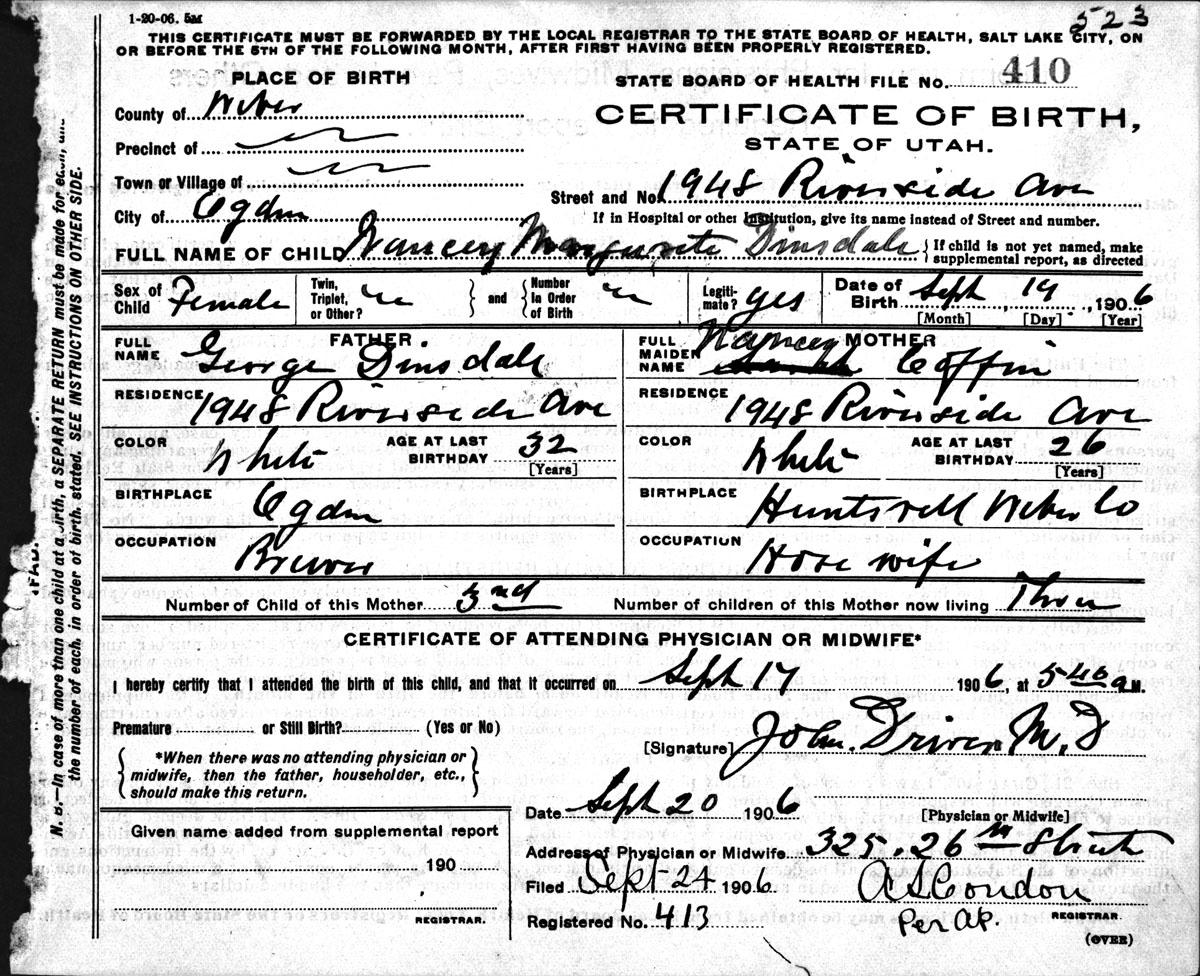 1-20-06. 5M
523
THIS CERTIFICATE MUST BE FORWARDED BY THE LOCAL REGISTRAR TO THE STATE BOARD OF HEALTH, SALT LAKE CITY, ON
OR BEFORE THE 5TH OF THE FOLLOWING MONTH, AFTER FIRST HAVING BEEN PROPERLY REGISTERED.
PLACE OF BIRTH
STATE BOARD OF HEALTH FILE No. 410
County of Weber
CERTIFICATE OF BIRTH,
Precinct of
STATE OF UTAH.
Town or Village of
Street and No. 1948 Riverside Ave
City of Ogden
If in Hospital or other Institution, give its name instead of Street and number.
FULL NAME OF CHILD Nancey Marguerite Dinsdale
If child is not yet named, make
supplemental report, as directed
Sex of Child Female
Twin, Triplet, or Other?
and
Number in Order of Birth
Legiti-mate? yes
Date of Birth Sept 19, 1906
[Month] [Day] [Year]
FATHER
FULL NAME George Dinsdale
MOTHER
FULL MAIDEN NAME Nancey Coffin
RESIDENCE 1948 Riverside Ave
RESIDENCE 1948 Riverside Ave
COLOR White
AGE AT LAST BIRTHDAY 32
[Years]
COLOR White
AGE AT LAST BIRTHDAY 26
[Years]
BIRTHPLACE Ogden
BIRTHPLACE Huntsvill Weber Co
OCCUPATION Brewer
OCCUPATION Hose wife
Number of Child of this Mother 3rd
Number of children of this Mother now living Three
CERTIFICATE OF ATTENDING PHYSICIAN OR MIDWIFE*
I hereby certify that I attended the birth of this child, and that it occurred on Sept 17 1906, at 540 a M.
Premature or Still Birth? (Yes or No)
[Signature] John Driver M.D
*When there was no attending physician or
midwife, then the father, householder, etc.,
should make this return.
Date Sept 20 1906
[Physician or Midwife]
Given name added from supplemental report
Address of Physician or Midwife 325. 26th Street
190
Filed Sept-24 1906
A S Condon
REGISTRAR.
Registered No. 413
Per AP.
REGISTRAR
(OVER)
N. B.—In case of more than one child at a birth, a SEPARATE RETURN must be made for each, and
the number of each, in order of birth, stated. SEE INSTRUCTIONS ON OTHER SIDE.